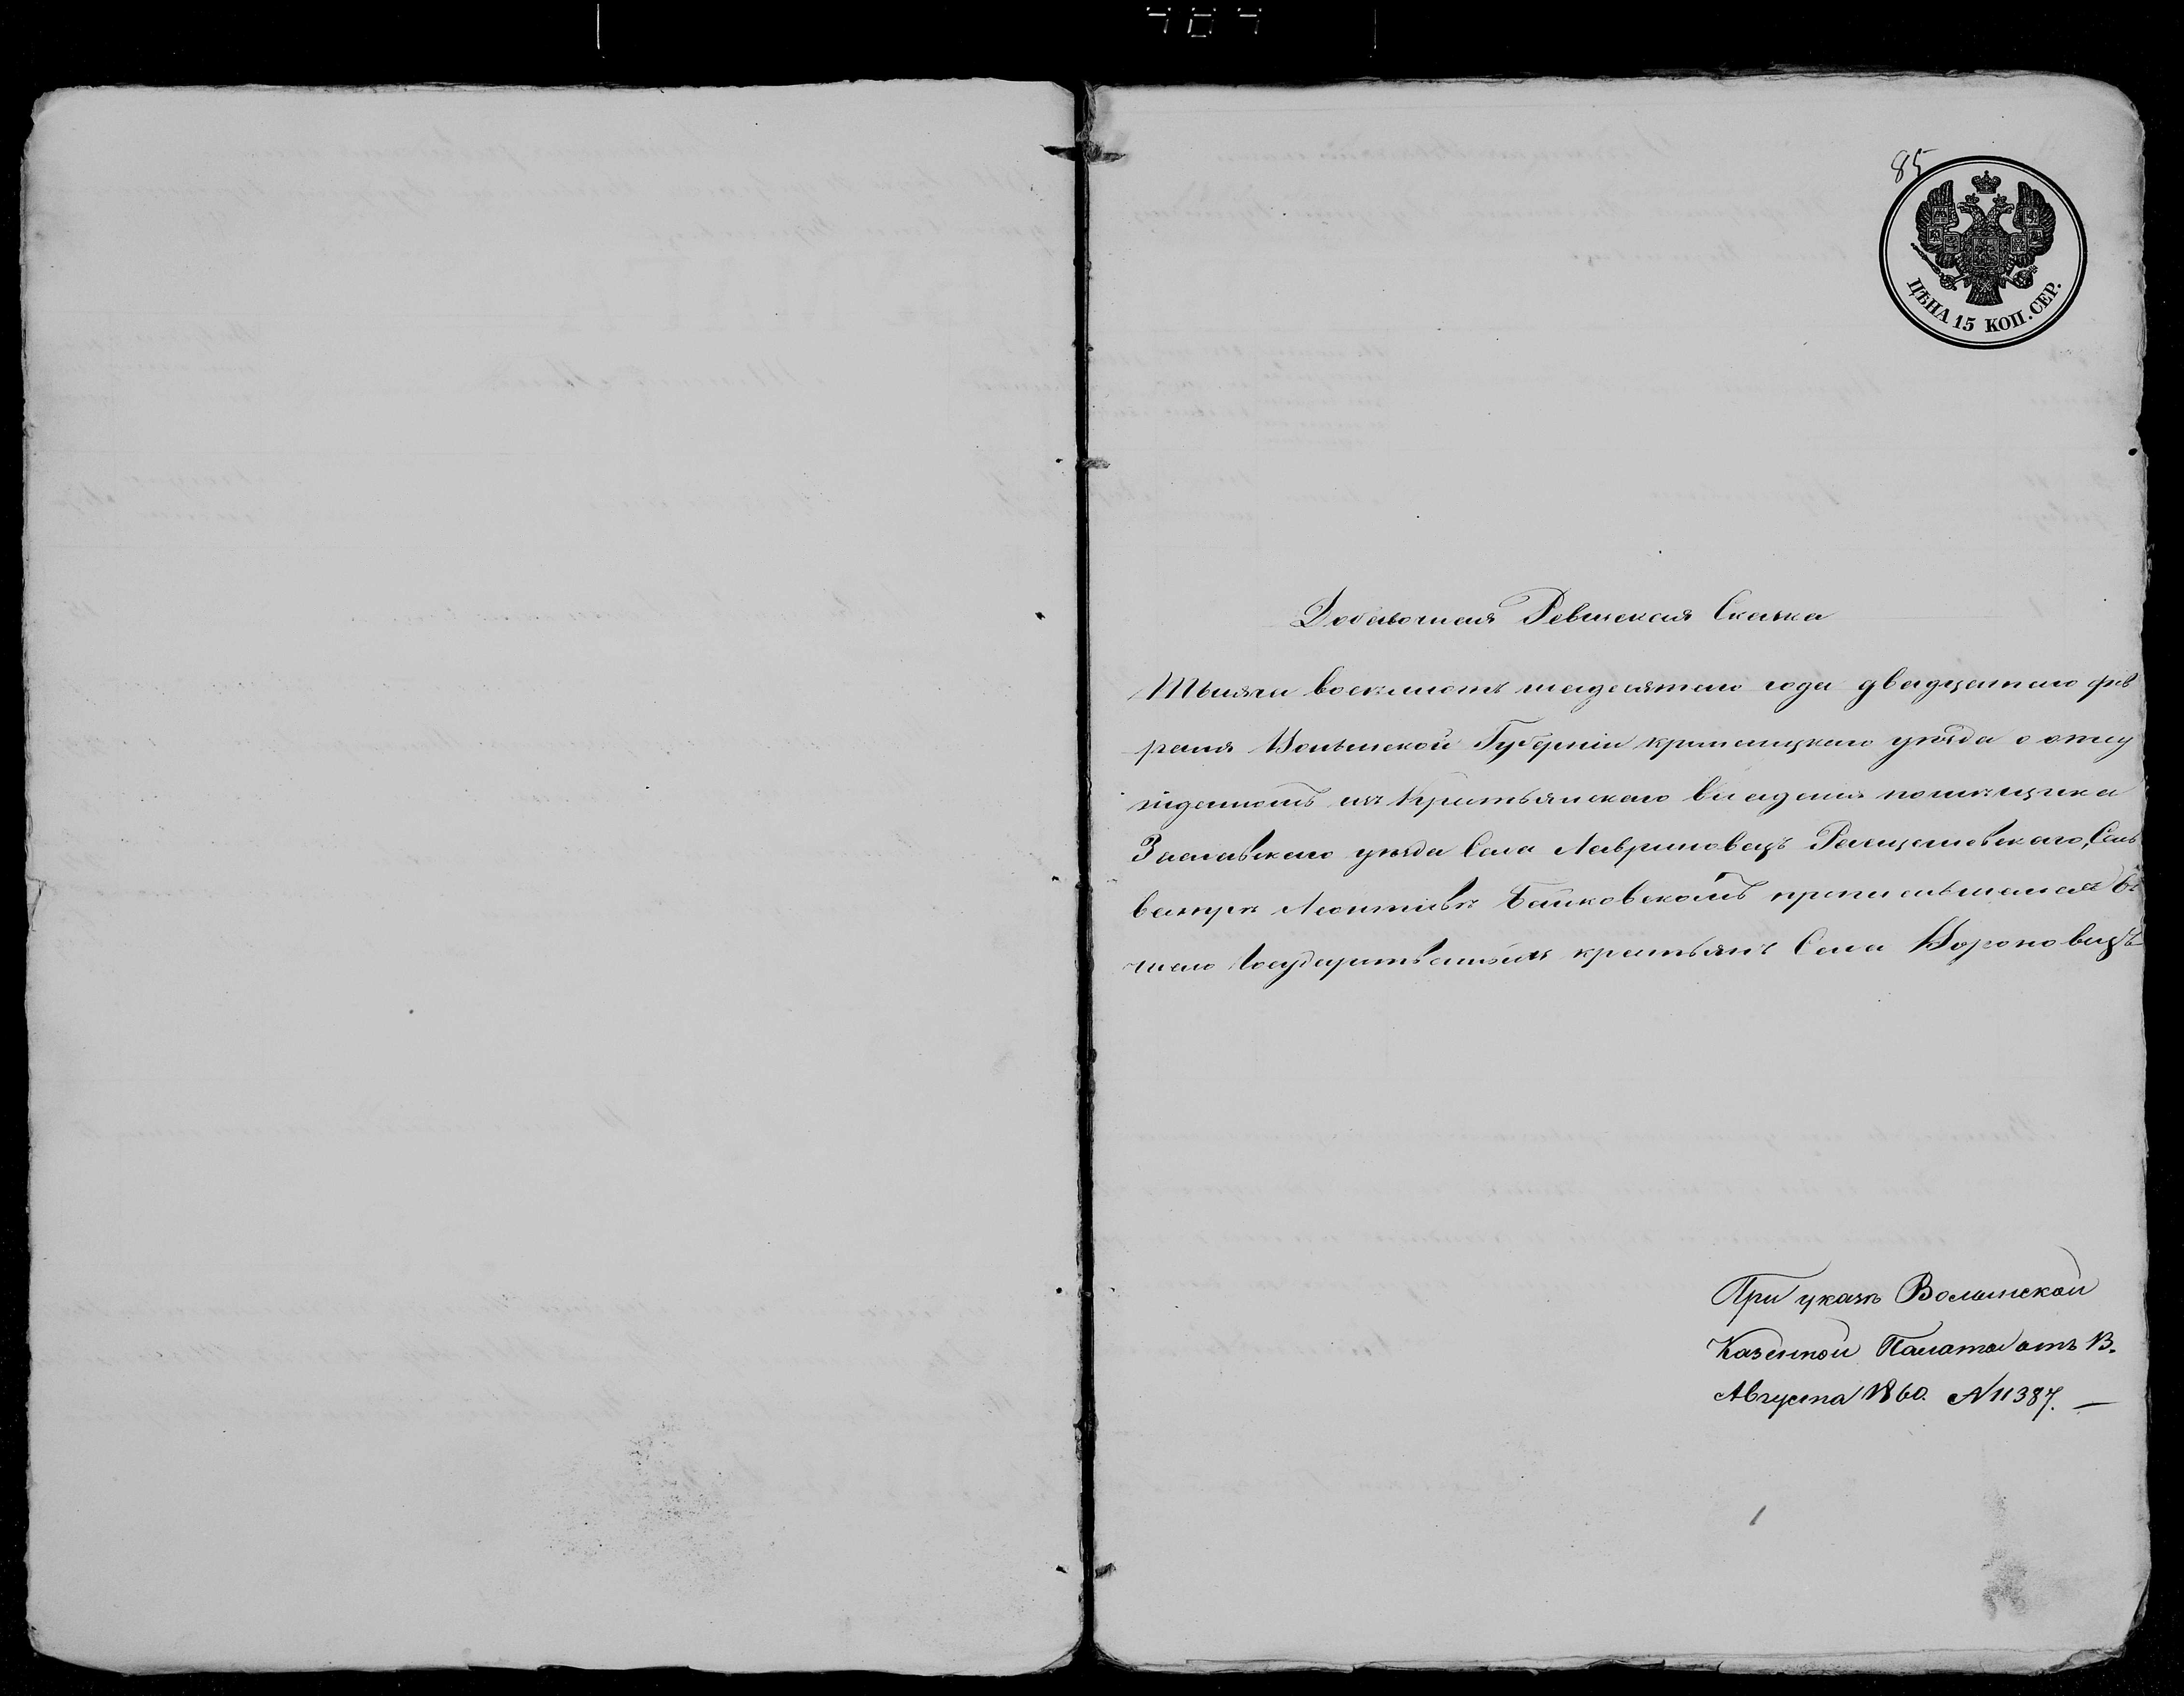 85
ЦѢНА 15 КОП. СЕР.
Добавочная Ревизская Сказка
Тысяча восемьсотъ шестдесятаго года двадцатаго фев
раля Волынской Губерніи кременецкаго уѣзда о отсу
жденномъ изъ Крестьянскаго владенія помѣщика
Заславскаго уѣзда Села Лавриновецъ
Леонтіевѣ Банковскомъ приписавшемся въ
число Государственныхъ крестьянъ Села Вороновецъ
При указѣ Волынской
Казенной Палаты отъ 13.
Августа 1860. N 11387. —